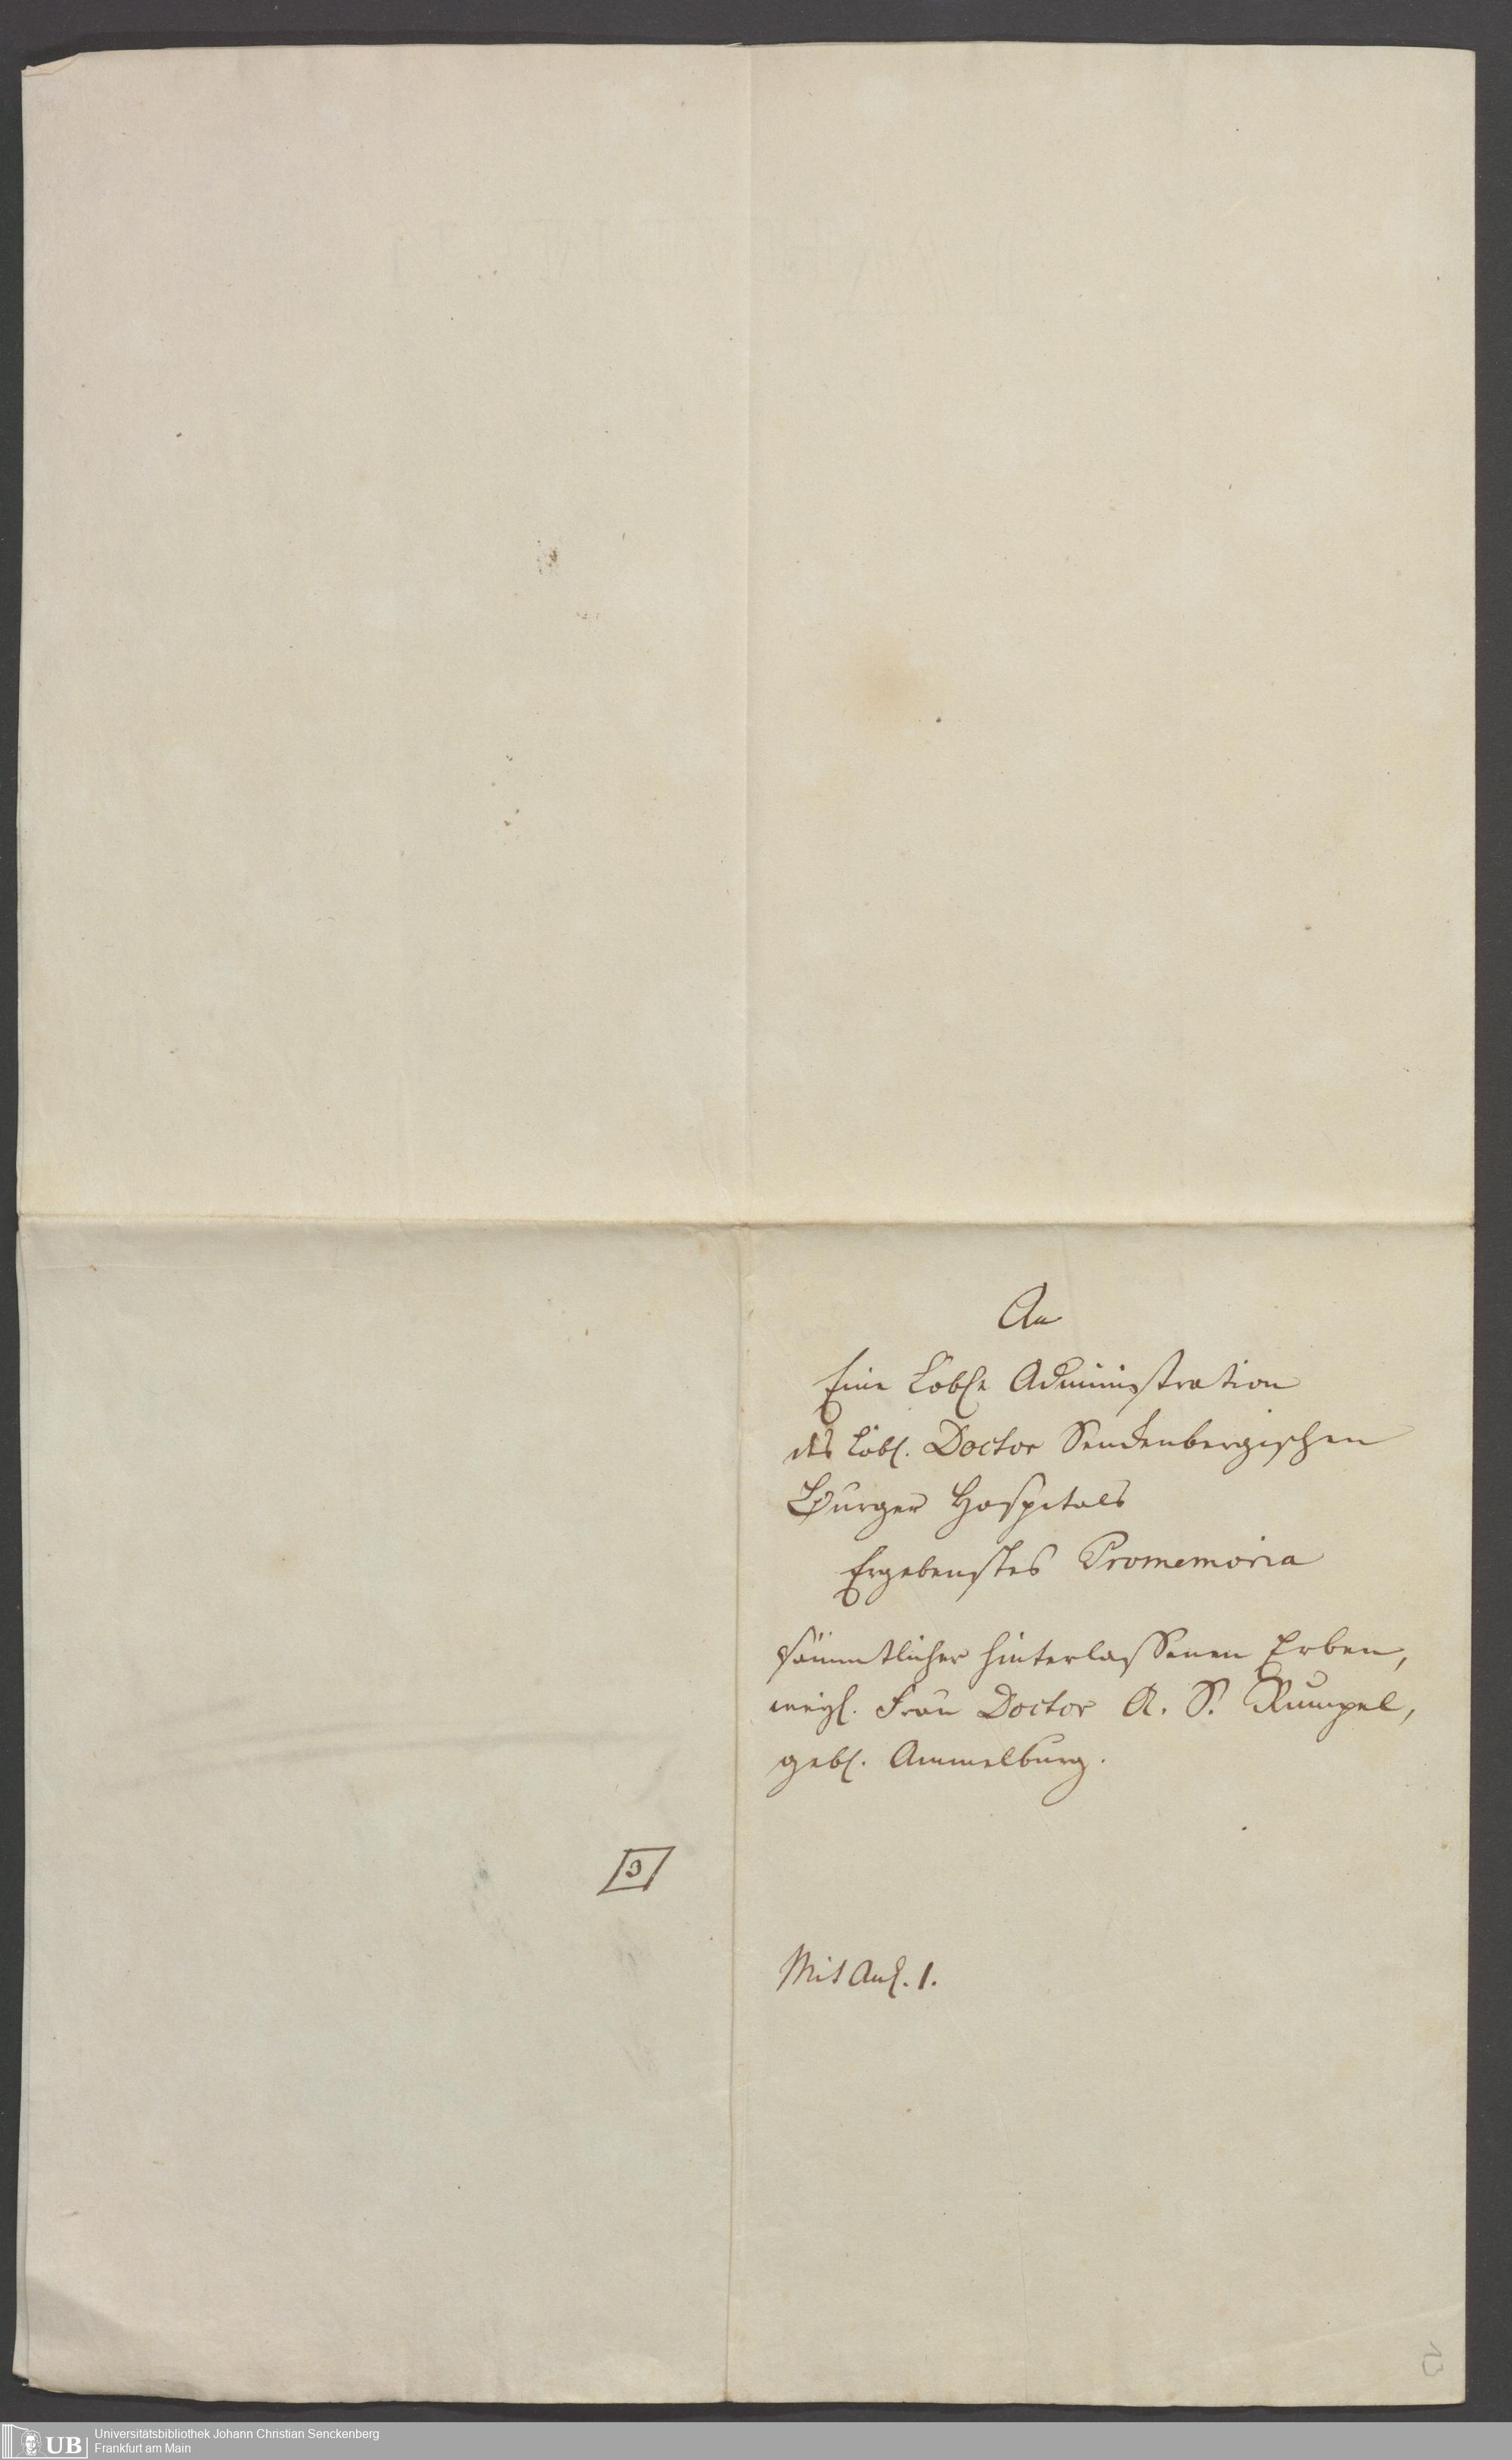 An
Eine Löbl. Administration
des Löbl. Doctor Senckenbergischen
Bürger Hospitals
Ergebenstes Promemoria
sämmtlicher hinterlassenen Erben,
weyl. Frau Doctor A. S. Rumpel,
gebl. Ammelburg.
Mit Anl. 1.
13
UB
Universitätsbibliothek Johann Christian Senckenberg
Frankfurt am Main